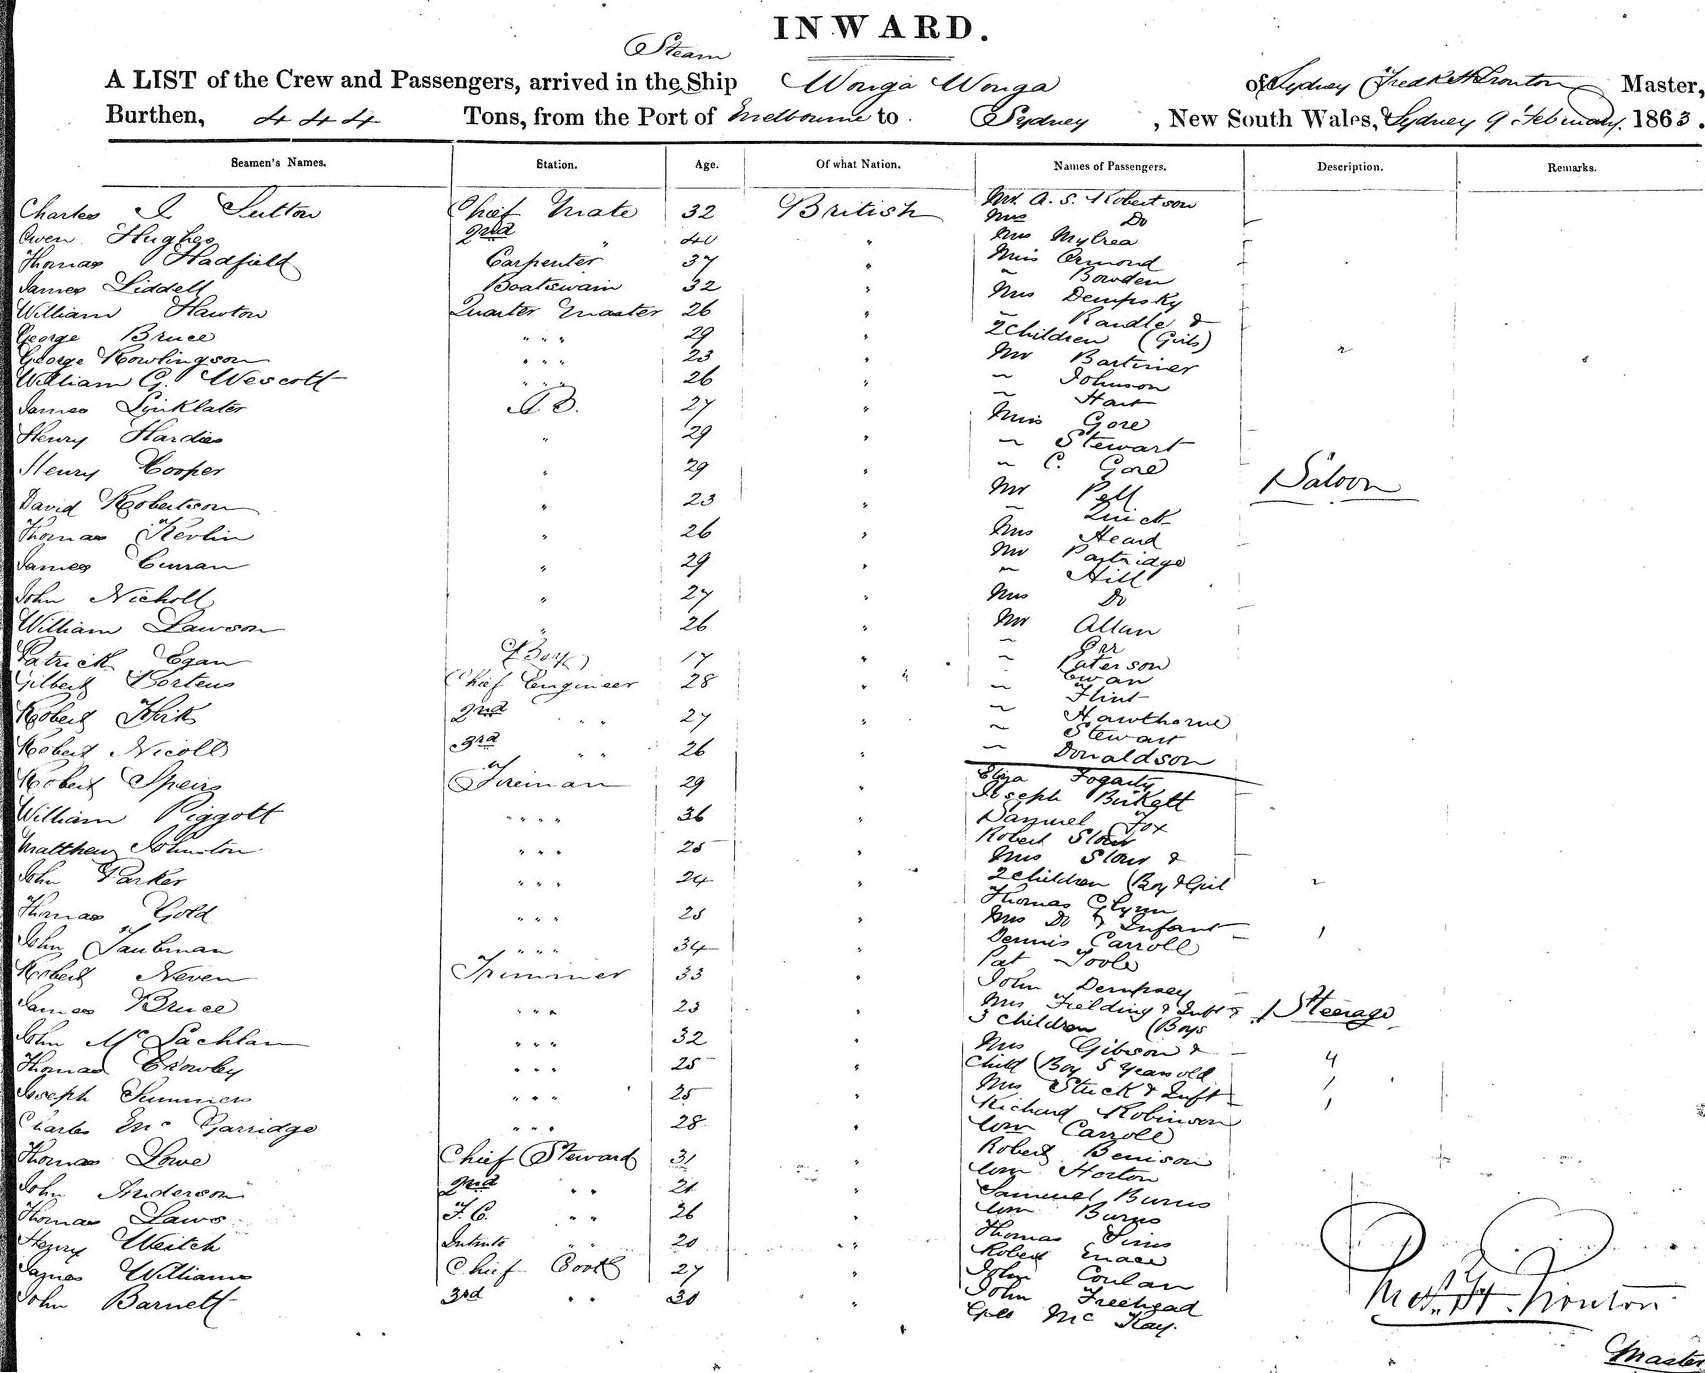 INWARD.
Steam
A LIST of the Crew and Passengers, arrived in the Ship Wonga Wonga of Sydney Fredk H Trouton Master,
Burthen, 444 Tons, from the Port of Melbourne to Sydney, New South Wales, Sydney 9 February 1863.
Seamen's Names. Station. Age. Of what Nation. Names of Passengers. Description. Remarks.
Charles Sutton Chief Mate 32 British
Owen Hughes 2nd " 40 "
Thomas Hadfield Carpenter 37 "
James Liddell Boatswain 32 "
William Hawton Quarter Master 26 "
George Bruce " " " 29 "
George Rowlingson " " " 23 "
William G. Wescott " " " 26 "
James Linklater A B. 27 "
Henry Hardies " 29 "
Henry Cooper " 29 "
David Robertson " 23 "
Thomas Kevlin " 26 "
James Curran " 29 "
John Nicholl " 27 "
William Lawson " 26 "
Patrick Egan (Boy) 17 "
Gilbert Porteus Chief Engineer 28 "
Robert Kirk 2nd " " 27 "
Robert Nicoll 3rd " " 26 "
Robert Speirs Fireman 29 "
William Piggott " " " " 36 "
Matthew Johnston " " " 25 "
John Parker " " " 24 "
Thomas Gold " " " 25 "
John Taubman " " " 34 "
Robert Neven Trimmer 33 "
James Bruce " " " 23 "
John McLachlan " " " 32 "
Thomas Crowley " " " 25 "
Joseph Summers " " " 25 "
Charles McGarridge " " " 28 "
Thomas Lowe Chief Steward 31 "
John Anderson 2nd " " 21 "
Thomas Laws F. C. " " 26 "
Henry Weitch 20 "
James Williams Chief Cook 27 "
John Barnett 3rd " " 30 "
Mr. A. S. Robertson
Mrs Do
Mrs Mylrea
Miss Ormond
" Bowden
Mrs Dempsky
" Randle &
2 Children (Girls) 2
Mr Bartimer
" Johnson
" Hart
Miss Gore
" Stewart
" C. Gore
Saloon
Mr Pell
" Quick
Mrs Heard
Mr Partridge
" Hill
Mrs Do
Mr Allan
" Orr
" Paterson
" Ewan
" Flint
" Hawthorne
" Stewart
" Donaldson
Eliza Fogarty
Joseph Birkett
Samuel Fox
Robert Slour
Mrs Slour &
2 Children (Boy & Girl 2
Thomas Glynn
Mrs Do & Infant 1
Dennis Carroll
Pat Toole
John Dempsey
Mrs Fielding & Inft &
Steerage
3 Children (Boys
Mrs Gibson & 4
Child (Boy 5 Years old 1
Mrs Stuck & Inft 1
Richard Robinson
Wm Carroll
Robert Benison
Wm Horton
Samuel Burns
Wm Burns
Thomas Sims
Robert Mace
John Conlan
John Freehead
Geo McKay.
Fredk H. Trouton
Master